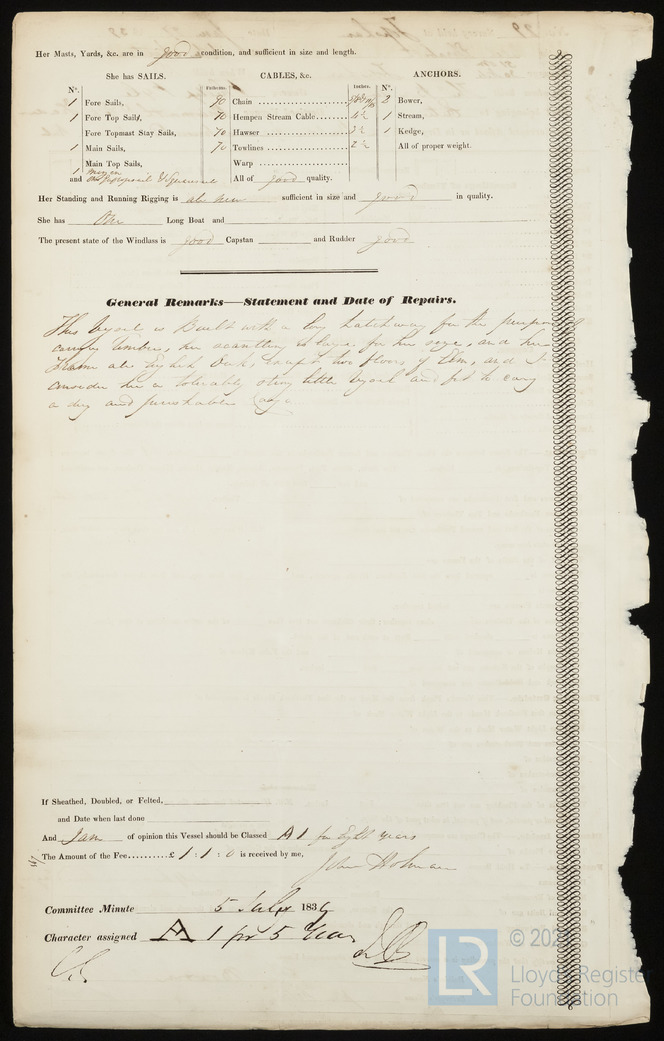 Her Masts, Yards, &c. are in good condition, and sufficient in size and length.
She has SAILS.
CABLES, &c.
ANCHORS.
N°.
Fathoms.
Inches.
N°.
1 Fore Sails,
90 Chain
2 Bower,
1 Fore Top Sails,
70 Hempen Stream Cable
1 Stream,
Fore Topmast Stay Sails,
70 Hawser
1 Kedge,
1 Main Sails,
70 Towlines
All of proper weight.
Main Top Sails,
Warp
and
All of good quality.
Her Standing and Running Rigging is all new sufficient in size and good in quality.
She has One Long Boat and
The present state of the Windlass is good Capstan and Rudder good
General Remarks—Statement and Date of Repairs.
This Vessel is Built with a long hatchway for the purpose of
carrying timber, her scantling is large for her size, and her
Frame all English Oak, except two floors of Elm, and I
consider her a tolerably strong little vessel and fit to carry
a dry and perishable Cargo
If Sheathed, Doubled, or Felted,
and Date when last done
And I am of opinion this Vessel should be Classed A1 for Eight years
The Amount of the Fee £ 1 : 1 : 0 is received by me,
John Holman
Committee Minute 5 183
Character assigned A 1 for 5 Years
© 202
LR
Lloyd's Register
Foundation